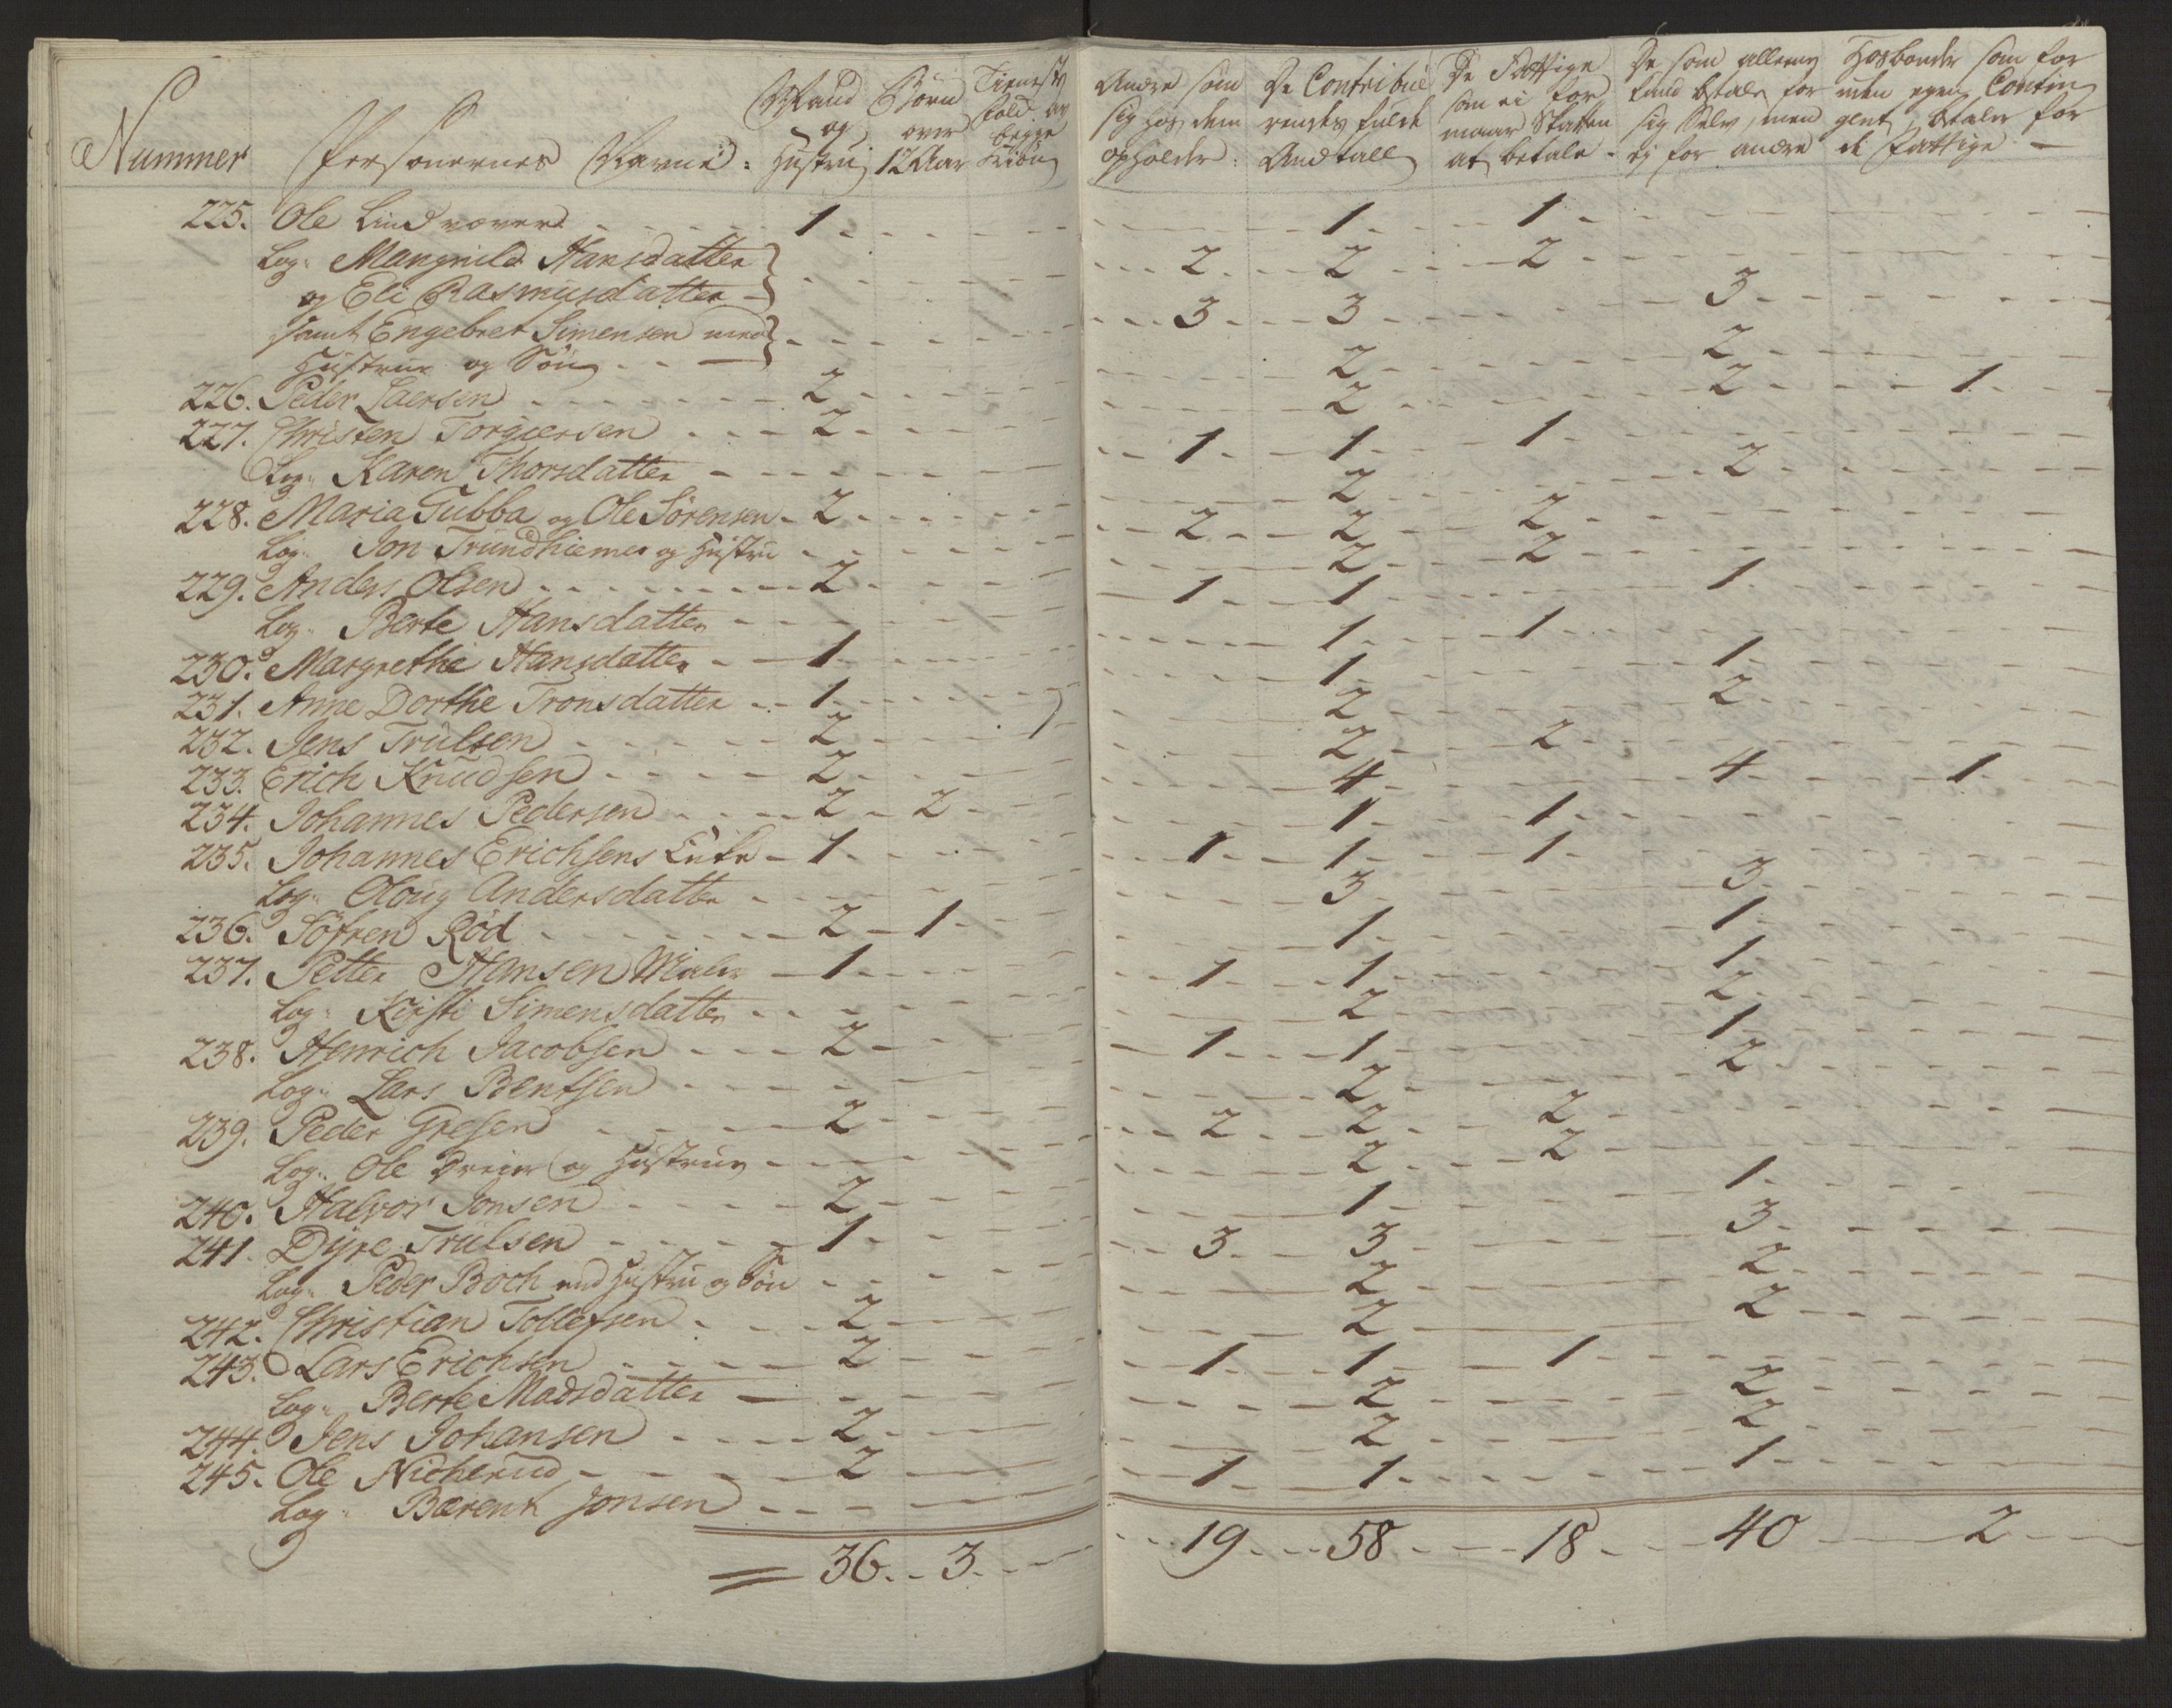 Nummer
Personernes Navne:
Mand og Hustru
Børn over 12 Aar
Tieneste Folk av begge Kiøn
Andre som sig hos dem opholder:
De Contribuerendes fulde Andtall
De Fattige som ei formaar Skatten at betale.
De som allene kand betale for sig Selv, men ej for andre
Hosbonder som for uden egen Contingent, betaler for de Fattige
225. Ole Lindvæver 1 1 1
Log: Mangnild Hansdatter 2 2 2
og Eli Rasmusdatter
samt Engebret Simensen med 3 3 3
Hustrue og Søn
226. Peder Laersen 2 2 2
227. Christen Torgiersen 2 2 2 1
Log: Karen Thorsdatter 1 1 1
228. Maria Tubba og Ole Sörensen 2 2 2
Log: Jon Trundhiemer og Hustru 2 2 2
229. Anders Olsen 2 2 2
Log: Berte Hansdatter 1 1 1
230. Margrethe Hansdatter 1 1 1
231. Anne Dorthe Tronsdatter 1 1 1
232. Jens Trulsen 2 2 2
233. Erich Knudsen 2 2 2
234. Johannes Pedersen 2 2 4 4 1
235. Johannes Erichsens Enke 1 1 1
Log: Oloug Andersdatter 1 1 1
236. Söfren Röd 2 1 3 3
237. Petter Hansen Maler 1 1 1
Log: Kirsti Simensdatter 1 1 1
238. Henrich Jacobsen 2 2 2
Log: Lars Bentsen 1 1 1
239. Peder Gresen 2 2 2
Log: Ole Dreier og Hustrue 2 2 2
240. Halvor Jonsen 2 2 2
241. Dyre Trulsen 1 1 1
Log: Peder Boch med Hustru og Søn 3 3 3
242. Christian Tollefsen 2 2 2
243. Lars Erichsen 2 2 2
Log: Berte Madsdatter 1 1 1
244. Jens Johansen 2 2 2
245. Ole Nicherud 2 2 2
Log: Bærent Jonsen 1 1 1
36. 3. 19. 58. 18. 40 2